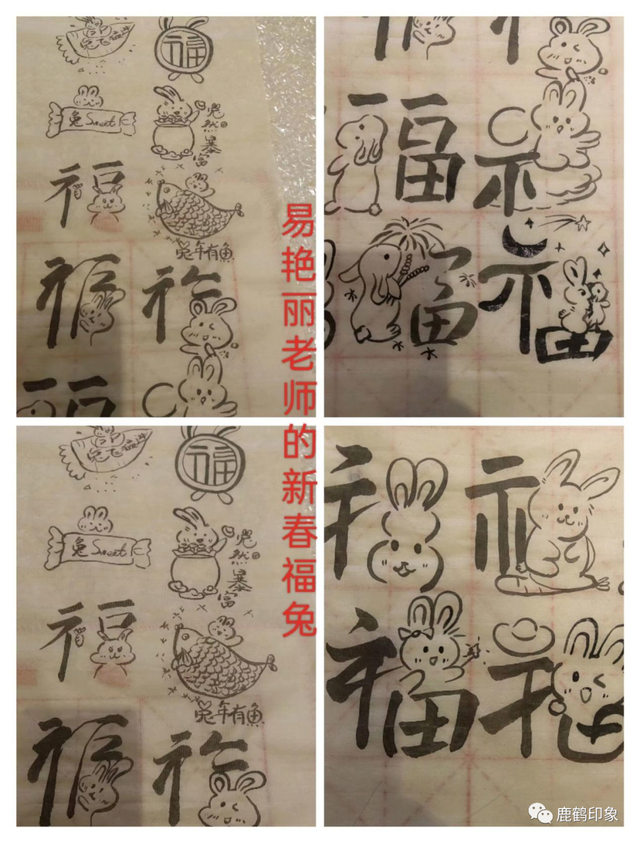 福
兔Sweet
兔然暴富
福
兔年有鱼
福
福
福
福
福
福
易艳丽老师的新春福兔
福
兔Sweet
兔然暴富
福
兔年有鱼
福
福
福
福
福
福
鹿鹤印象